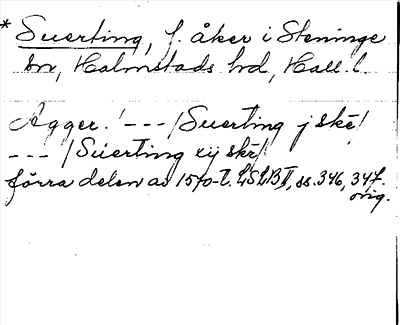 * Suerting, f. åker i Steninge
sn, Halmstads hd, Hall. l.
Agger. ! --- / Suerting j skē /
--- / Suerting xij skē /
förra delen av 1570-t. LSLB II, ss. 346, 347.
orig.